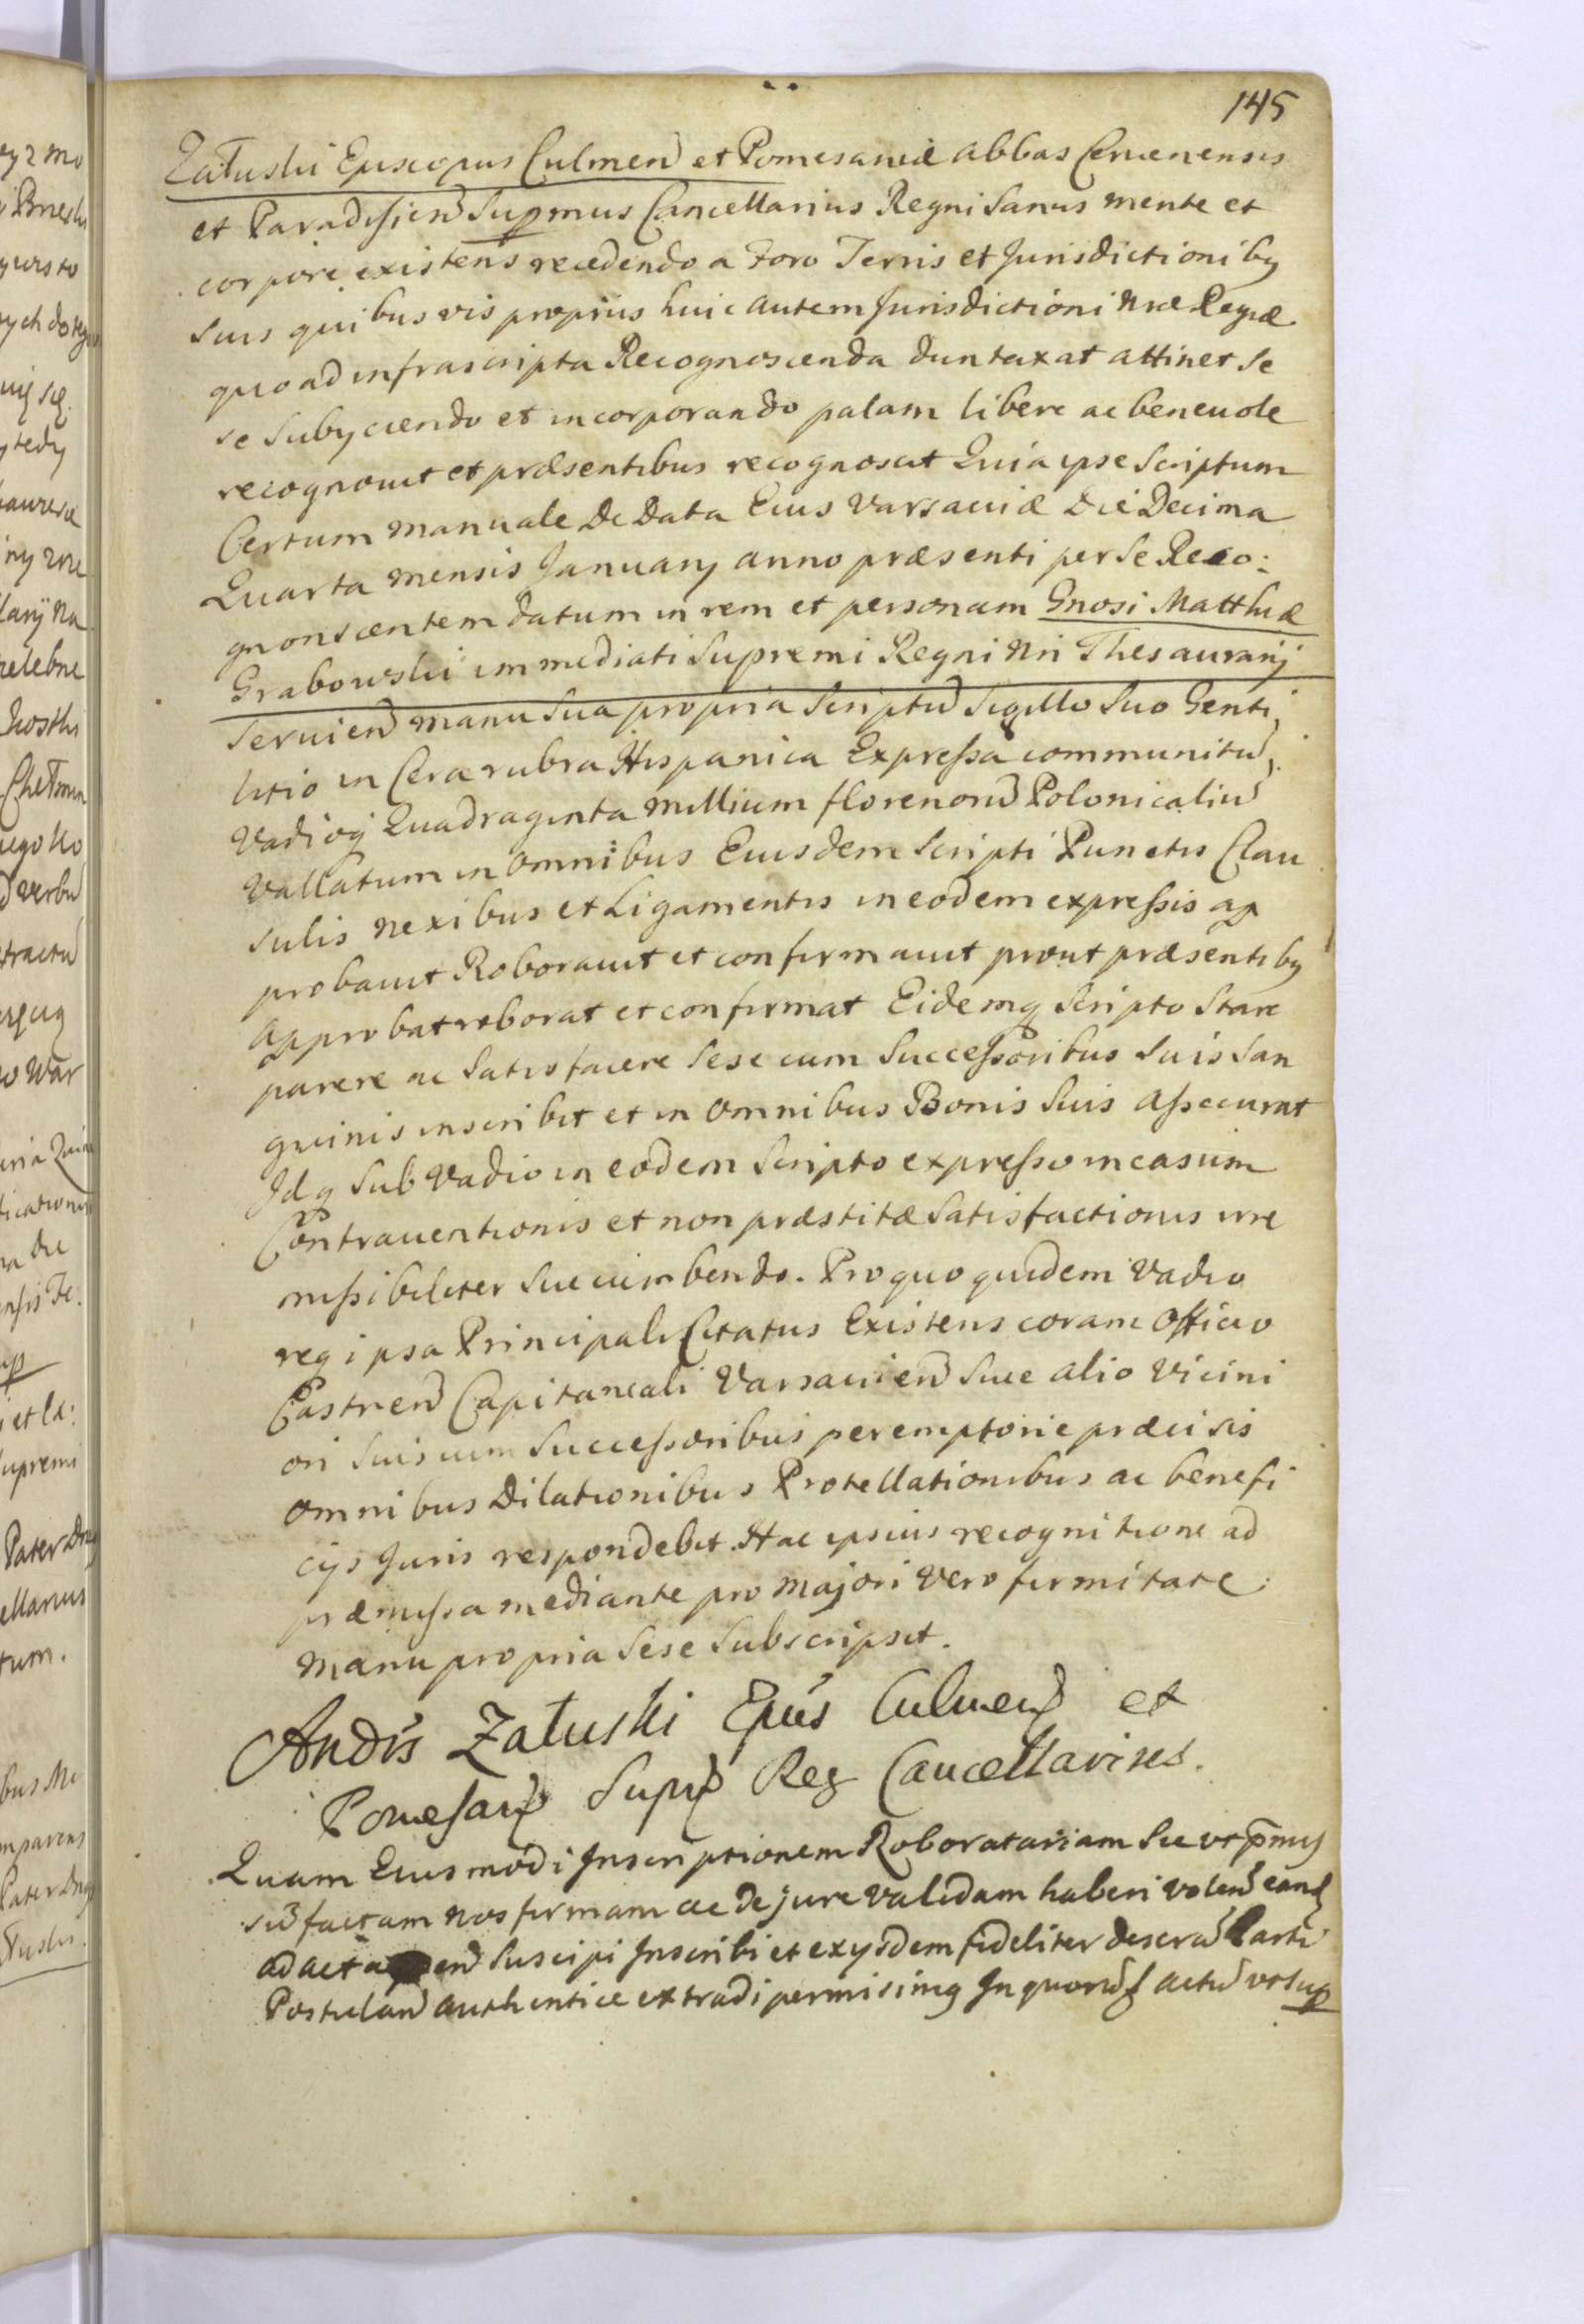 145
Załuski Episcopus Culmen et Pomesaniæ Abbas Cervenensis
et Paradisien Supmus Cancellarius Regni Sanus mente et
corpore existens recedendo a Foro Terris et Jurisdictioniby
suis quibus vis propriis huic autem Jurisdictioni nræ Regiæ
quo ad infrascripta Recognoscenda duntaxat attinet se
se subyciendo et incorporando palam libere ac beneuole
recognouit et præsentibus recognoscit Quia ipse Scriptum
Certum manuale De Data Eius Varsauiæ Die Decima
Quarta mensis January anno præsenti per Se Reco:
gnonscentem datum in rem et personam Gnosi Matthiæ
Grabowski immediati Supremi Regni Nri Thesaurarij
Seruien manu sua propria Scriptu Sigillo Suo Genti
litio in Cera rubra Hispanica Expressa communitu,
Vadioq Quadraginta Millium florenoru Polonicaliu
Vallatum in omnibus Eiusdem Scripti Punctis Clau
sulis nexibus et Ligamentis in eodem expressis ap
probauit Roborauit et confirmauit prout præsentiby
approbat roborat et confirmat Eidemq Scripto Stare
parere ac Satisfacere Sese cum Successoribus Suis San
guinis inscribit et in Omnibus Bonis Suis Assecurat
Idq Sub Vadio in eodem Scripto expresso in casum
Contrauentionis et non præstitæ Satisfactionis irre
missibiliter Succumbendo. Pro quo quidem Vadio
reqipsa Principali Citatus Existens coram Officio
Castren Capitaneali Varsauien Siue alio Vicini
ori Suis cum Successoribus peremptorie præcisis
omnibus Dilationibus Protellationibus ac benefi
cijs Juris respondebit. Hac ipsius recognitione ad
præmissa mediante pro majori vero firmitate
manu propria Sese Subscripsit.
Andrs Załuski Epus Culmen et
Pomesan Supr Reg Cancellarius.
Quam Eiusmodi Inscriptionem Roboratariam Sic ut pmis
su factam nos firmam ac de jure validam haberi volen eand
ad acta en Suscipi Inscribi et exysdem fideliter descra Parti
Postulan authentice extradi permisimq In quoru actu ut sup